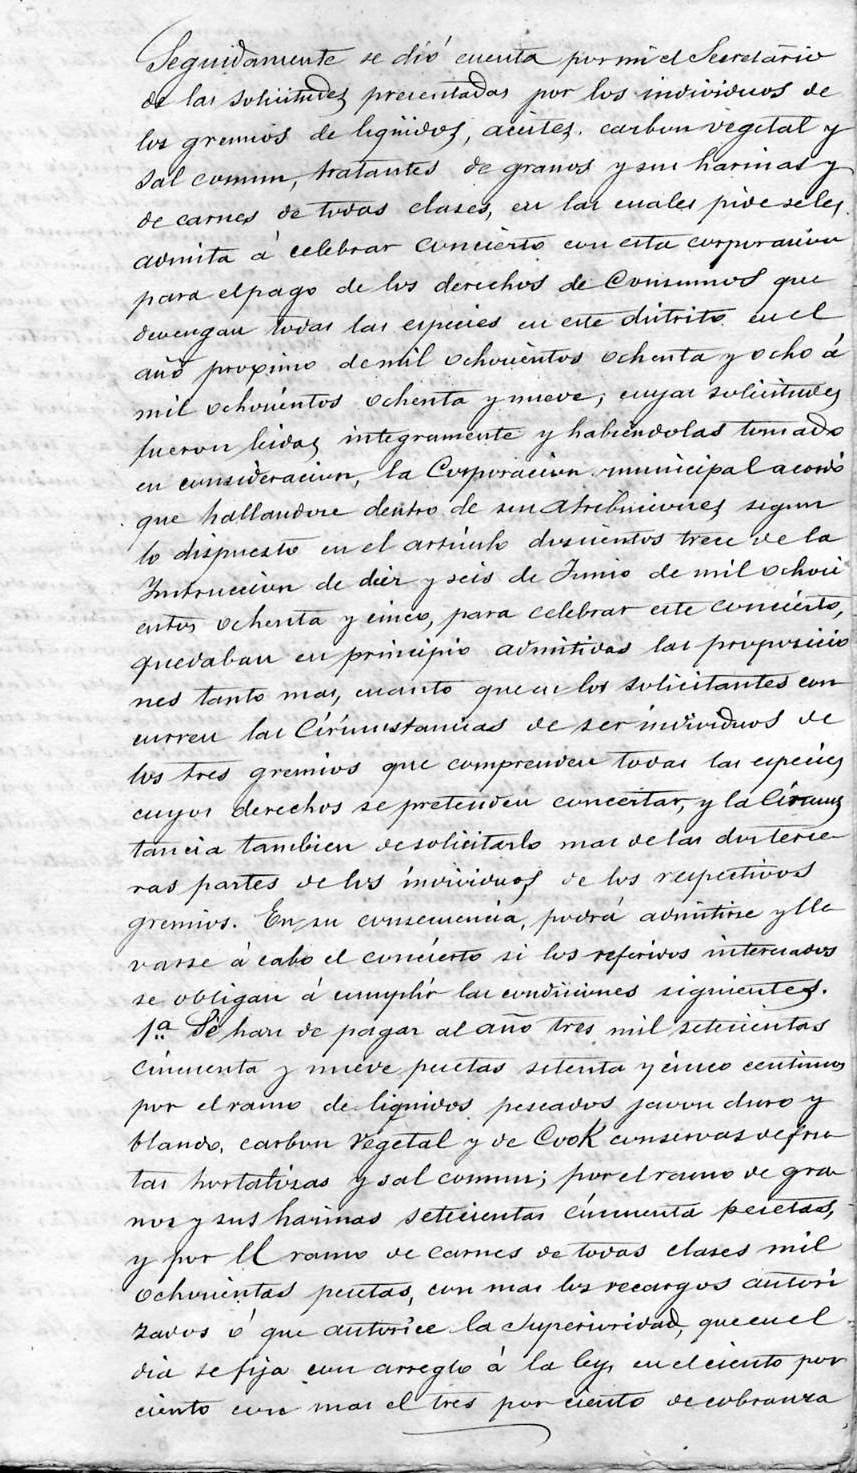 Seguidamente se dió cuenta por mi el Secretario
de las solicitudes presentadas por los individuos de
los gremios de liquidos, aceites, carbon vegetal y
sal comun, tratantes de granos y sus harinas y
de carnes de todas clases, en las cuales pide se les
admita á celebrar concierto con esta corporacion
para el pago de los derechos de Consumos que
devengan todas las especies en este distrito en el
año proximo de mil ochocientos ochenta y ocho á
mil ochocientos ochenta y nueve; cuyas solicitudes
fueron leidas integramente y habiendolas tomado
en consideracion, la Corporacion municipal acordó
que hallandose dentro de sus atribuciones segun
lo dispuesto en el articulo doscientos trece de la
Instruccion de diez y seis de Junio de mil ochoci
entos ochenta y cinco, para celebrar este concierto,
quedaban en principio admitidas las proposicio
nes tanto mas, cuanto que en los solicitantes con
curren las Circunstancias de ser individuos de
los tres gremios que comprenden todas las especies
cuyos derechos se pretenden concertar, y la Circuns
tancia tambien de solicitarlo mas de las dos terce-
ras partes de los individuos de los respectivos
gremios. En su consecuencia, podrá admitirse y lle
varse á cabo el concierto si los referidos interesados
se obligan á cumplir las condiciones siguientes.
1ª Se han de pagar al año tres mil setecientas
cincuenta y nueve pesetas setenta y cinco centimos
por el ramo de liquidos pescados javon duro y
blando, carbon vegetal y de Cook conservas de fru-
tas hortalizas y sal comun; por el ramo de gra
nos y sus harinas setecientas cincuenta pesetas,
y por El ramo de carnes de todas clases mil
ochocientas pesetas, con mas los recargos autori
zados ó que autorice la Superioridad, que en el
dia se fija con arreglo á la ley, en el ciento por
ciento con mas el tres por ciento de cobranza